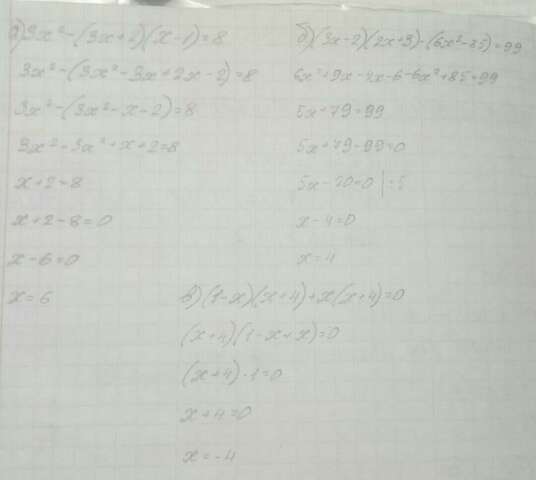 а) 3x² - (3x + 2)(x - 1) = 8
3x² - (3x² - 3x + 2x - 2) = 8
3x² - (3x² - x - 2) = 8
3x² - 3x² + x + 2 = 8
x + 2 = 8
x + 2 - 8 = 0
x - 6 = 0
x = 6
б) (3x - 2)(2x + 3) - (6x² - 85) = 99
6x² + 9x - 4x - 6 - 6x² + 85 = 99
5x + 79 = 99
5x + 79 - 99 = 0
5x - 20 = 0 | : 5
x - 4 = 0
x = 4
в) (1 - x)(x + 4) + x(x + 4) = 0
(x + 4)(1 - x + x) = 0
(x + 4) · 1 = 0
x + 4 = 0
x = -4